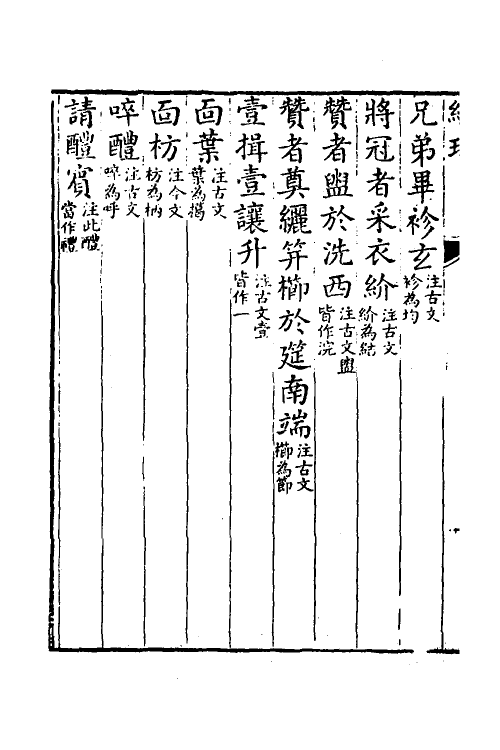 兄弟畢袗玄注古文袗為均
將冠者采衣紒注古文紒為結
贊者盥於洗西注古文盥皆作浣
贊者奠纚笄櫛於筵南端注古文櫛為節
壹揖壹讓升注古文壹皆作一
面葉注古文葉為擖
面枋注今文枋為柄
啐醴注古文啐為呼
請醴賓注此醴當作禮